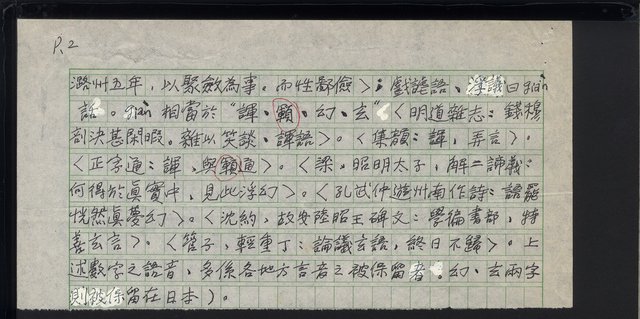 P.2
潞州五年，以聚斂為事。而性鄙儉〉；戲謔語、浮議曰
話。 相當於“諢、顐、幻、玄”〈明道雜志：錢穆
剖決甚閑暇。雜以笑談、諢語〉。〈集韻：諢，弄言〉。
〈正字通：諢，與顐通〉。〈梁，昭明太子，解二諦義：
何得於真實中，見此浮幻〉。〈孔武仲遊州南作詩：語罷
恍然真夢幻〉。〈沈約，故安陸昭王碑文：學徧書部，特
善玄言〉。〈管子，輕重丁：論議玄語，終日不歸〉。上
述數字之語音，多係各地方言音之被保留者。幻、玄兩字
則被保留在日本）。